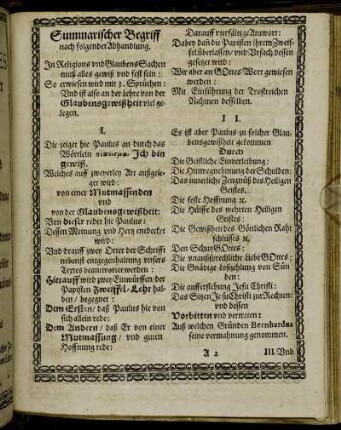 Summarischer Begriff
nach folgender Abhandlung.
In Religions vnd Glaubens Sachen
muß alles gewiß vnd fest sein:
So erwiesen wird mit 3. Sprüchen:
Vnd ist also an der Lehre von der
Glaubensgewißheit viel ge-
legen.
I.
Die zeiget hie Paulus an durch das
Wörtlein Ich bin
gewiß.
Welches auff zweyerley Art außgele-
get wird:
von einer Mutmassenden
vnd
von der Glaubensgewißheit:
Von dieser redet hie Paulus:
Dessen Meinung vnd Hertz endecket
wird:
Vnd drauff zwey Orter der Schrifft
nebenst entgegenhaltung vnsers
Textes beantwortet werden:
Hierauff wird zwey Einwürffen der
Papisten Zweiffel-Lehr hal-
ben / begegnet:
Dem Ersten / daß Paulus hie von
sich allein rede:
Dem Andern / daß Er von einer
Mutmassung / vnd guten
Hoffnung rede:
Darauff vierfältige Antwort:
Dabey dan die Papisten ihrem Zweif-
fel überlassen / vnd Vrsach dessen
gesetzet wird:
Wir aber an GOttes Wort gewiesen
werden:
Mit Einführung der Trostreichen
Nahmen desselben.
II.
Es ist aber Paulus zu solcher Glau-
bensgewißheit gekommen
Durch
Die Geistliche Einverleibung:
Die Hinwegnehmung der Schulden:
Das innerliche Zeugnüß des Heiligen
Geistes.
Die feste Hoffnung ꝛc.
Die Hülffe des wehrten Heiligen
Geistes:
Die Gewißheit des Göttlichen Raht
schlusses ꝛc.
Den Schutz GOttes:
Die vnaußsprechliche Liebe GOttes:
Die Gnädige loßzehlung von Sün
den:
Die aufferstehung Jesu Christi:
Das Sitzen Jesu Christi zur Rechten:
vnd dessen
Vorbitten vnd vertreten:
Auß welchen Gründen Bernhardus
seine vermahnung genommen.
A 2
III. Vnd